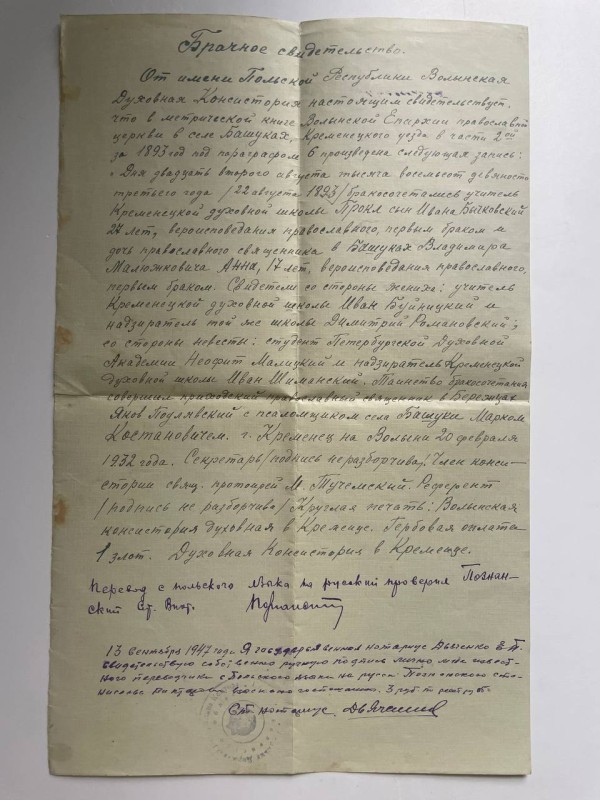 Брачное свидетельство.
От имени Польской Республики Волынская
Духовная Консистория настоящим свидетельствует,
что в метрической книге Волынской Епархии православной
церкви в селе Башуках, Кременецкого уезда в части 2ой
за 1893 год под параграфом 6 произведена следующая запись:
"Дня двадцать второго августа тысяча восемьсот девяносто
третьего года /22 августа 1893/ бракосочетались учитель
Кременецкой духовной школы Прокл сын Ивана Бычковский
27 лет, вероисповедания православного, первым браком и
дочь православного священника в Башуках Владимира
Малюжковича Анна, 17 лет, вероисповедания православного,
первым браком. Свидетели со стороны жениха: учитель
Кременецкой духовной школы Иван Буйницкий и
надзиратель той же школы Димитрий Романовский;
со стороны невесты: студент Петербургской Духовной
Академии Неофит Малицкий и надзиратель Кременецкой
духовной школы Иван Шиманский. Таинство бракосочетания
совершил приходский православный священник в Бережцах
Яков Подлявский с псаломщиком села Башуки Марком
Костановичем. г. Кременец на Волыни 20 февраля
1932 года. Секретарь /подпись неразборчива/. Член конси-
стории свящ. протоиерей М. Тучемский. Референт
/подпись не разборчива/ Круглая печать: Волынская
консистория духовная в Кременце. Гербовая оплата
1 злот. Духовная Консистория в Кременце.
Перевод с польского языка на русский проверил Познан-
ский Ст. Викт.
13 сентября 1947 года Я государственный нотариус Дьяченко Е. П.
свидетельствую собственно ручную подпись лично мне извест-
ного переводчика с Польского языка на русск Познанского Ста-
нислава Викторовича 3 руб.
Гос. нотариус Дьяченко